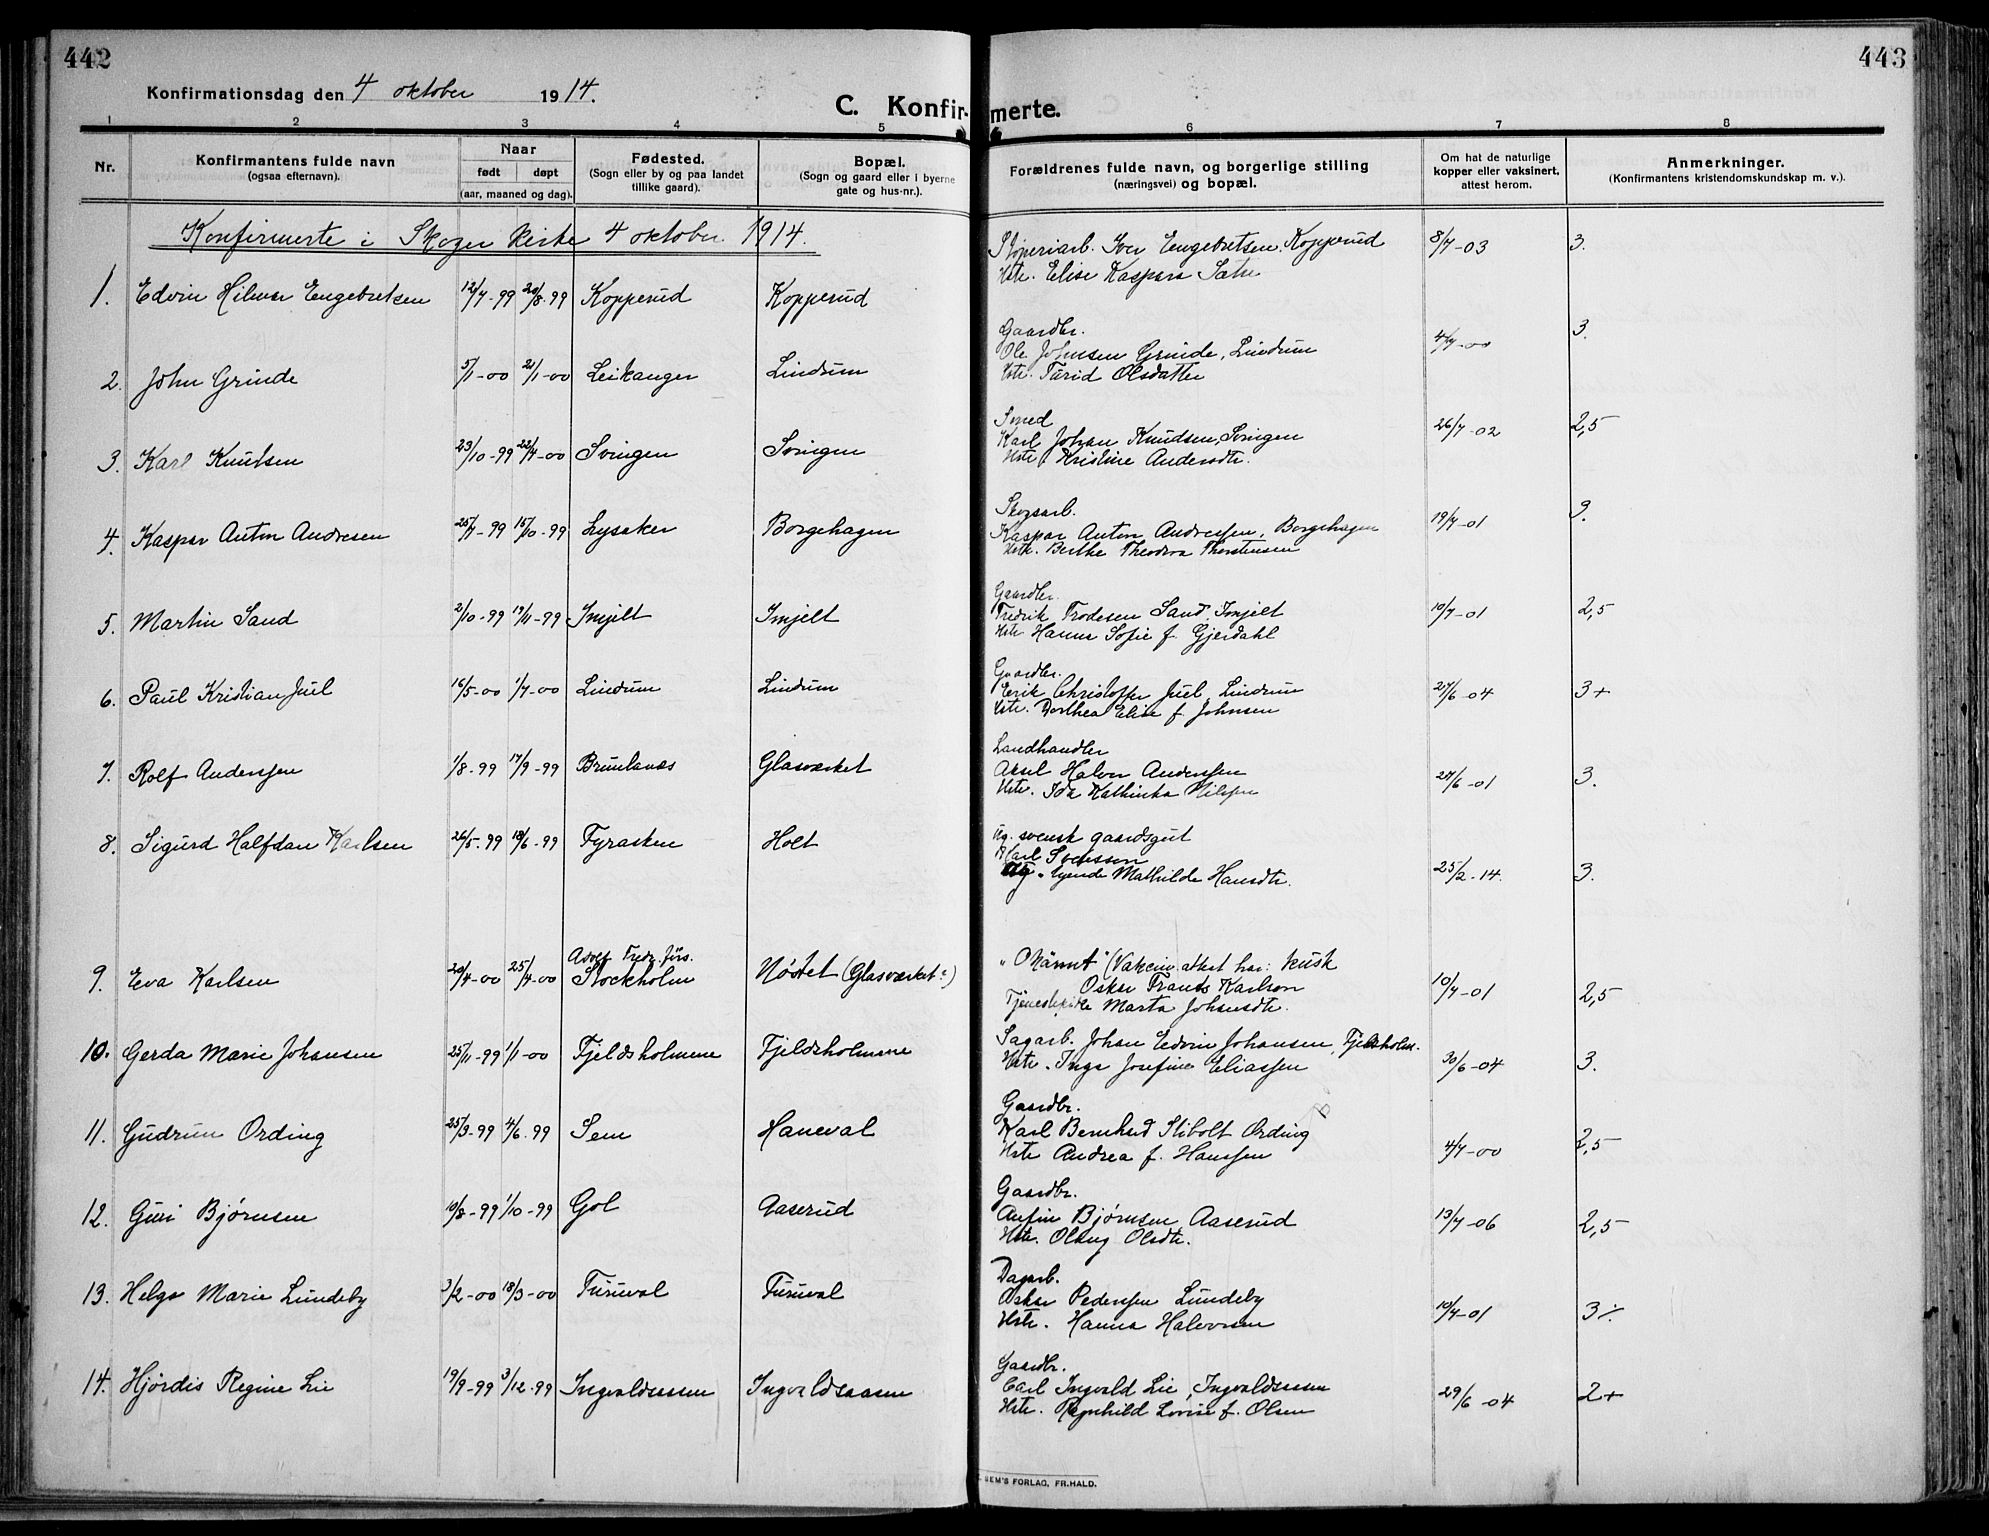 442
443
Konfirmationsdag den 4 oktober 1914.
C. Konfirmerte.
1 2 3 4 5 6 7 8
Nr.
Konfirmantens fulde navn
(ogsaa efternavn).
Naar
født døpt
(aar, maaned og dag).
Fødested.
(Sogn eller by og paa landet
tillike gaard).
Bopæl.
(Sogn og gaard eller i byerne
gate og hus-nr.).
Forældrenes fulde navn, og borgerlige stilling
(næringsvei) og bopæl.
Om hat de naturlige
kopper eller vaksinert,
attest herom.
Anmerkninger.
(Konfirmantens kristendomskundskap m. v.).
Konfirmerte i Skoger kirke 4 oktober 1914.
1. Edvin Hilmar Engebretsen 12/7-99 20/8-99 Kopperud Kopperud
Støperiarb. Iver Engebretsen, Kopperud 8/7-03 3.
Hstr. Elise Kaspara
2. John Grinde 5/1-00 21/1-00 Leikanger Lindum
Gaardbr.
Ole Johnsen Grinde, Lindum 4/7-00 3.
Hstr. Turid Olsdatter
3. Karl Knutsen 23/10-99 22/4-00 Svingen Svingen
Smed
Karl Johan Knudsen, Svingen 26/7-02 2,5
Hstr. Kristine Andersdtr.
4. Kaspar Anton Andresen 25/7-99 15/10-99 Lysaker Borgehagen
Skogsarb.
Kaspar Anton Andressen, Borgehagen 19/7-01 3.
Hstr. Berthe Theodora Thorstensen
5. Martin Sand 2/10-99 19/11-99 Imjelt Imjelt
Gaardbr.
Fredrik Frodesen Sand, Imjelt 10/7-01 2,5
Hstr. Hanna Sofie f. Gjerdahl
6. Paul Kristian Juel 16/5-00 1/7-00 Lindum Lindum
Gaardbr.
Eerik Christoffer Juel, Lindrum 27/6-04 3+
Hstr. Dorthea Elise f. Johnsen
7. Rolf Anderssen 1/8-99 17/9-99 Brunlanæs Glasværket
Landhandler
Aksel Halvor Anderssen 27/6-01 3.
Hstr. Ida Kathinka Nilssen
8. Sigurd Halfdan Karlsen 26/5-99 18/6-99 Fyrasken Holt
Ug. svensk gaardsgut
Karl Svensson
Ug. tjende Mathilde Hansdtr. 25/2-14. 3.
9. Eva Karlsen 20/4-00 25/4-00 Adolf Fredr. förs. Stockholm Nøstet (Glasværket?)
"Okännt" (Vakcineattest har: kusk
Oskar Frants Karlson 10/7-01 2,5
Marta Johansdtr.
10. Gerda Marie Johansen 25/11-99 1/1-00 Fjeldsholmene Fjeldsholmene
Sagarb. Johan Edvin Johansen, Fjeldsholm. 30/6-04 3.
Hstr. Inga Josefine Eliassen
11. Gudrun Ording 25/3-99 4/6-99 Sem Haneval
Gaardbr.
Karl Bernhard Stibolt Ording 4/7-00 2,5
Hstr Andrea f. Hanssen
12. Guri Bjørnsen 10/8-99 1/10-99 Gol Aaserud
Gaardbr.
Anfin Bjørnsen, Aaserud 13/7-06 2,5
Hstr. Olaug Olsdtr.
13. Helga Marie Lundeby 3/2-00 18/3-00 Furuval Furuval
Dagarb.
Oskar Pederssen Lundeby 10/7-01 3÷
Hstr. Hanna Halvorsen
14. Hjørdis Regine Lie 19/9-99 3/12-99 Ingvaldsaasen Ingvaldsaasen
Gaardbr.
Carl Ingvald Lie, Ingvaldsaasen 29/6-04 2+
Hstr. Ragnhild Lovise f. Olsen
SEM'S FORLAG, FR.HALD.